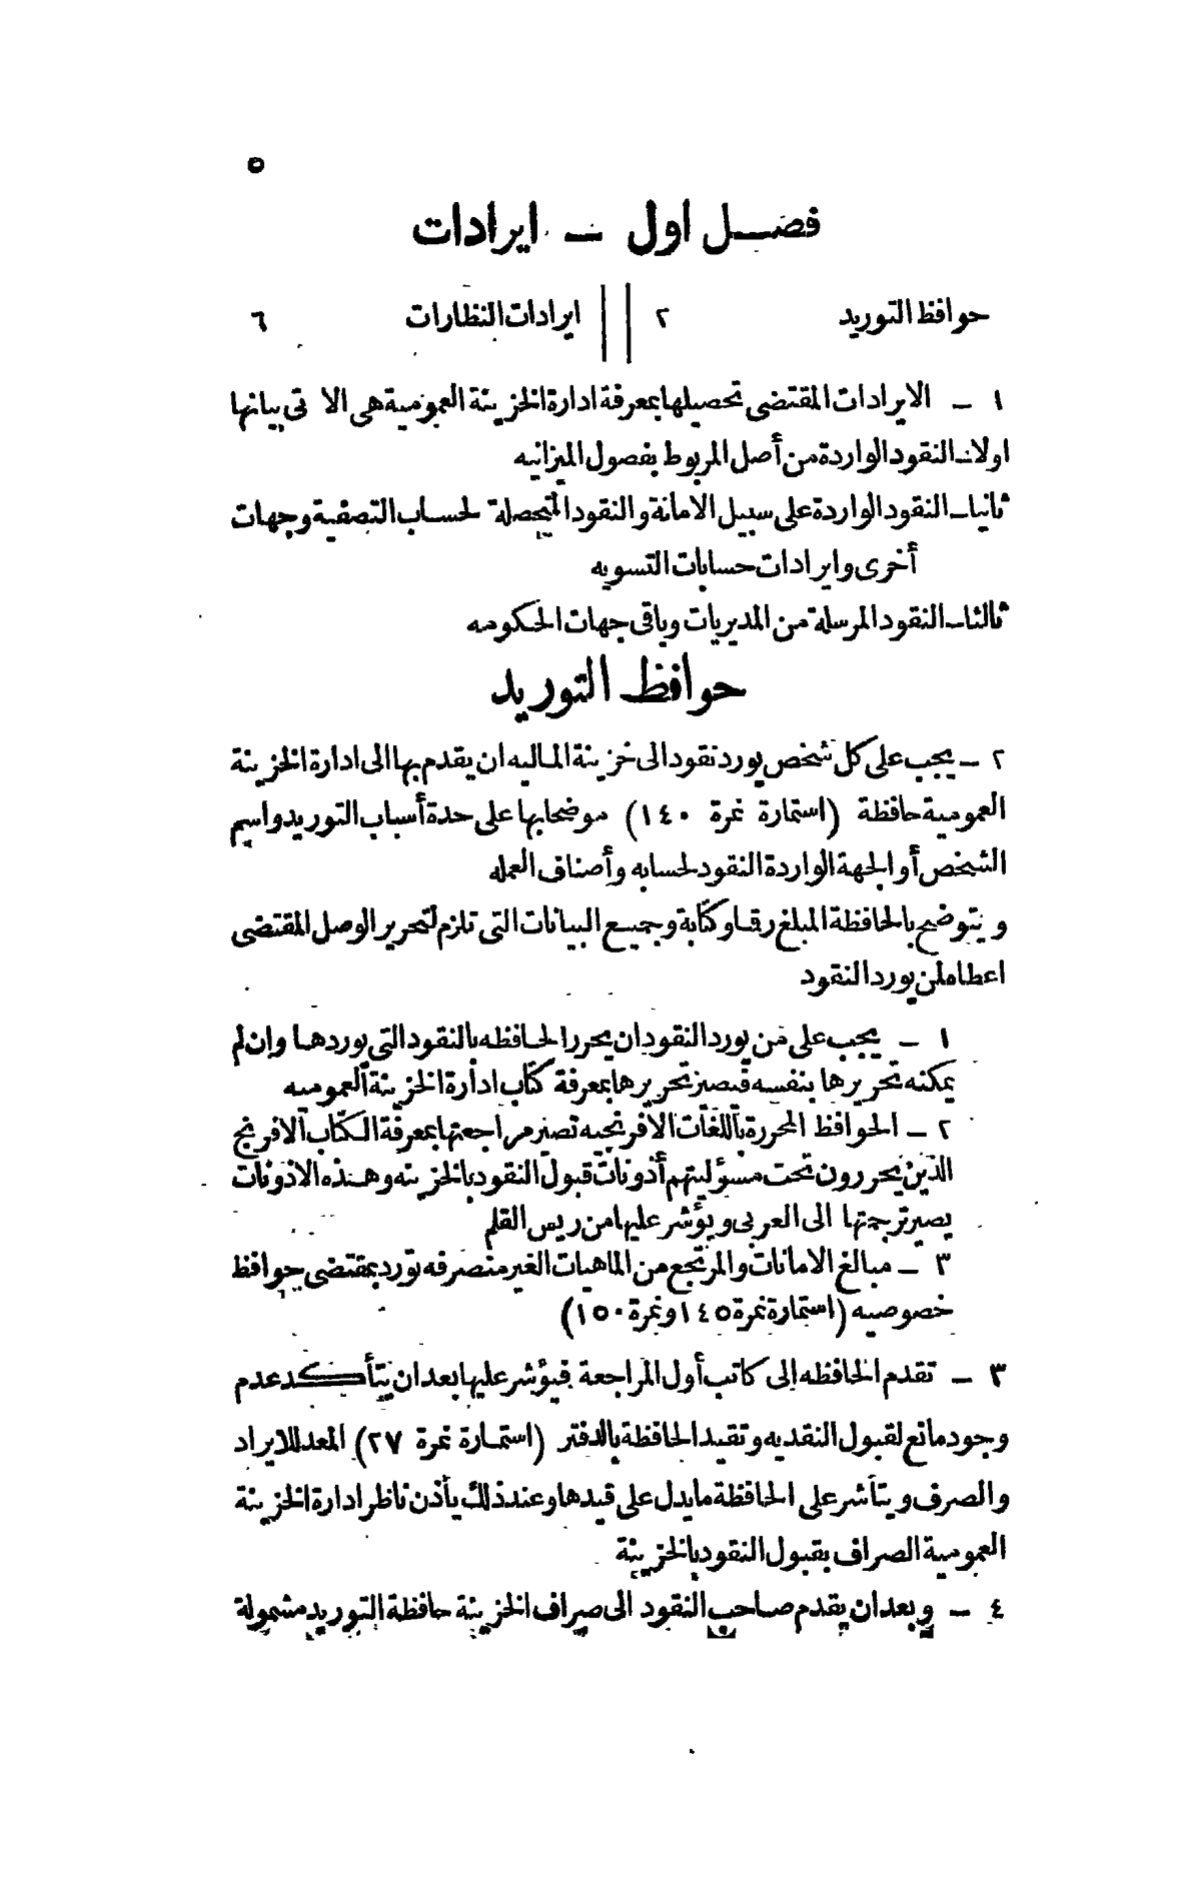 ٥
فصل اول — ايرادات
حوافظ التوريد ٢ ايرادات النظارات ٦
١ — الايرادات المقتضى تحصيلها بمعرفة ادارة الخزينة العمومية هى الاتى بيانها
اولا — النقود الواردة من أصل المربوط بفصول الميزانيه
ثانيا — النقود الواردة على سبيل الامانة والنقود المتحصلة لحساب التصفية وجهات
أخرى وايرادات حسابات التسويه
ثالثا — النقود المرسلة من المديريات وباقى جهات الحكومه
حوافظ التوريد
٢ — يجب على كل شخص يورد نقودا الى خزينة الماليه ان يقدم بها الى ادارة الخزينة
العمومية حافظة (استمارة نمرة ١٤٠) موضحا بها على حدة أسباب التوريد واسم
الشخص أو الجهة الواردة النقود لحسابه وأصناف العمله
ويتوضح بالحافظة المبلغ رقما وكتابة وجميع البيانات التى تلزم لتحرير الوصل المقتضى
اعطاه لمن يورد النقود
١ — يجب على من يورد النقود ان يحرر الحافظه بالنقود التى يوردها وان لم
يمكنه تحريرها بنفسه فيصير تحريرها بمعرفة كتاب ادارة الخزينة العموميه
٢ — الحوافظ المحررة باللغات الافرنجيه تصير مراجعتها بمعرفة الكتاب الافرنج
الذين يحررون تحت مسؤليتهم أذونات قبول النقود بالخزينه وهذه الاذونات
يصير ترجمتها الى العربى ويؤشر عليها من ريس القلم
٣ — مبالغ الامانات والمرتجع من الماهيات الغير منصرفه تورد بمقتضى حوافظ
خصوصيه (استمارة نمرة ١٤٥ ونمرة ١٥٠)
٣ — تقدم الحافظه إلى كاتب أول المراجعة فيؤشر عليها بعد ان يتأكد عدم
وجود مانع لقبول النقديه وتقيد الحافظة بالدفتر (استمارة نمرة ٢٧) المعد للايراد
والصرف ويتأشر على الحافظة مايدل على قيدها وعند ذلك يأذن ناظر ادارة الخزينة
العمومية الصراف بقبول النقود بالخزينة
٤ — وبعد ان يقدم صاحب النقود الى صراف الخزينة حافظة التوريد مشمولة